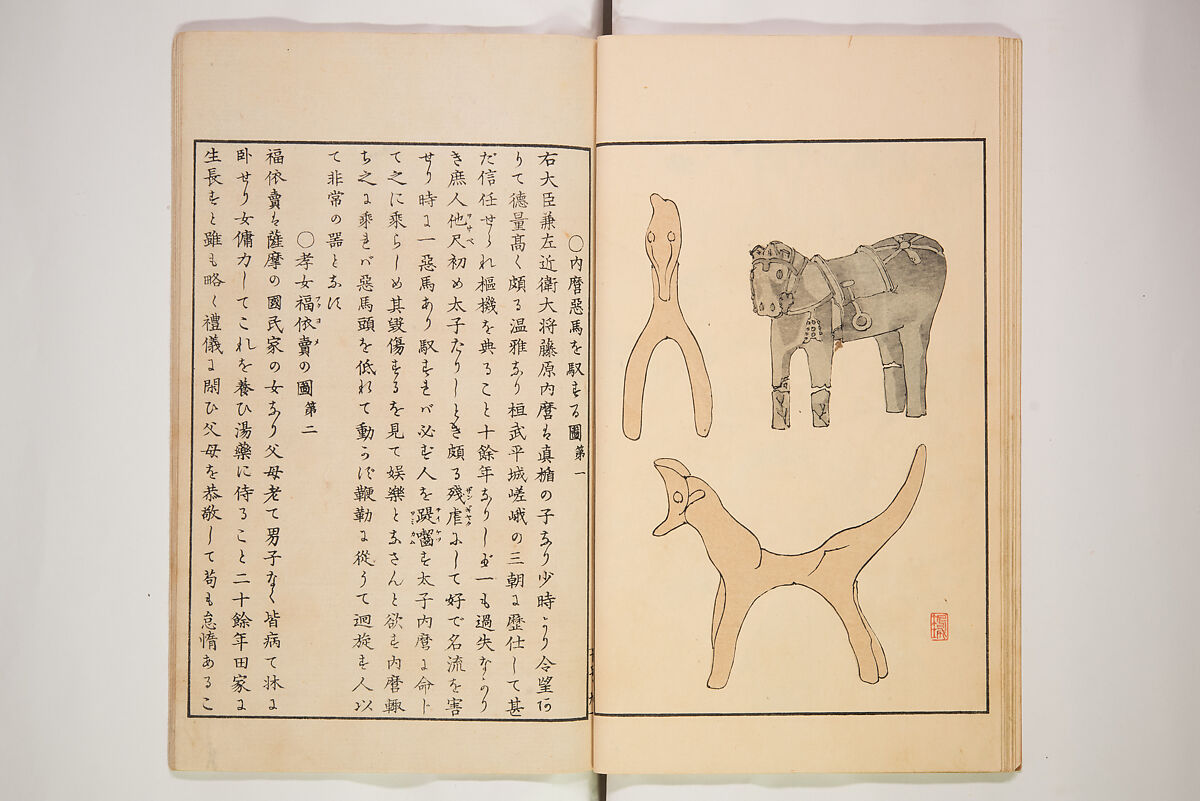 ○内麿惡馬を馭する圖 第一
右大臣兼左近衛大将藤原内麿は眞楯の子なり少時より令望あ
りて德量髙く頗る温雅なり桓武平城嵯峨の三朝に歷仕して甚
だ信任せられ樞機を典ること十餘年なりしが一も過失なかり
き庶人他尺初め太子たりしとき頗る殘虐にして好で名流を害
せり時に一惡馬あり馭すれバ必ず人を踶嚙す太子内麿に命じ
て之に乘らしめ其毀傷するを見て娯樂となさんと欲す内麿輙
ち之に乘れバ惡馬頭を低れて動かず鞭勒に從うて迴旋す人以
て非常の器となす
○孝女福依賣の圖 第二
福依賣は薩摩の國民家の女なり父母老て男子なく皆病て牀に
卧せり女傭力してこれを養ひ湯藥に侍ること二十餘年田家に
生長すと雖も略く禮儀に閑ひ父母を恭敬して苟も怠惰あるこ